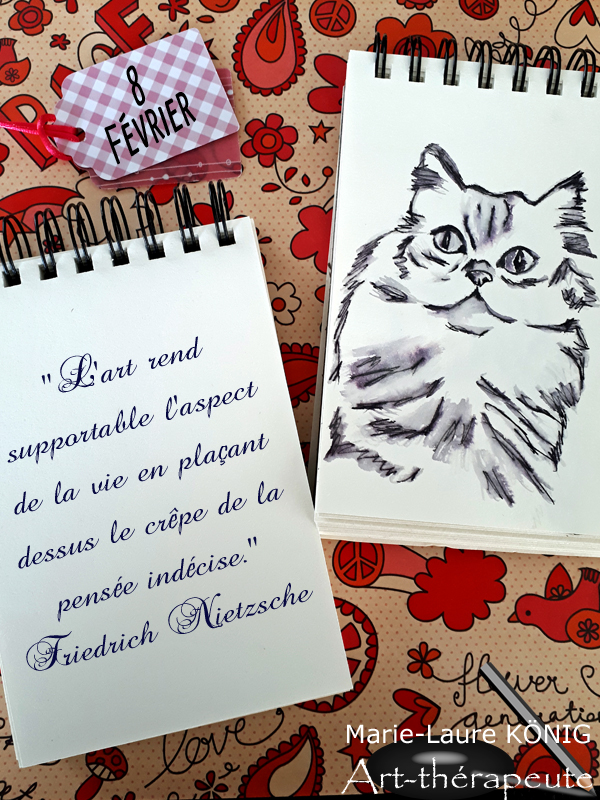 8
FÉVRIER
"L'art rend
supportable l'aspect
de la vie en plaçant
dessus le crêpe de la
pensée indécise."
Friedrich Nietzsche
flower
generation
love
Marie-Laure KÖNIG
Art-thérapeute